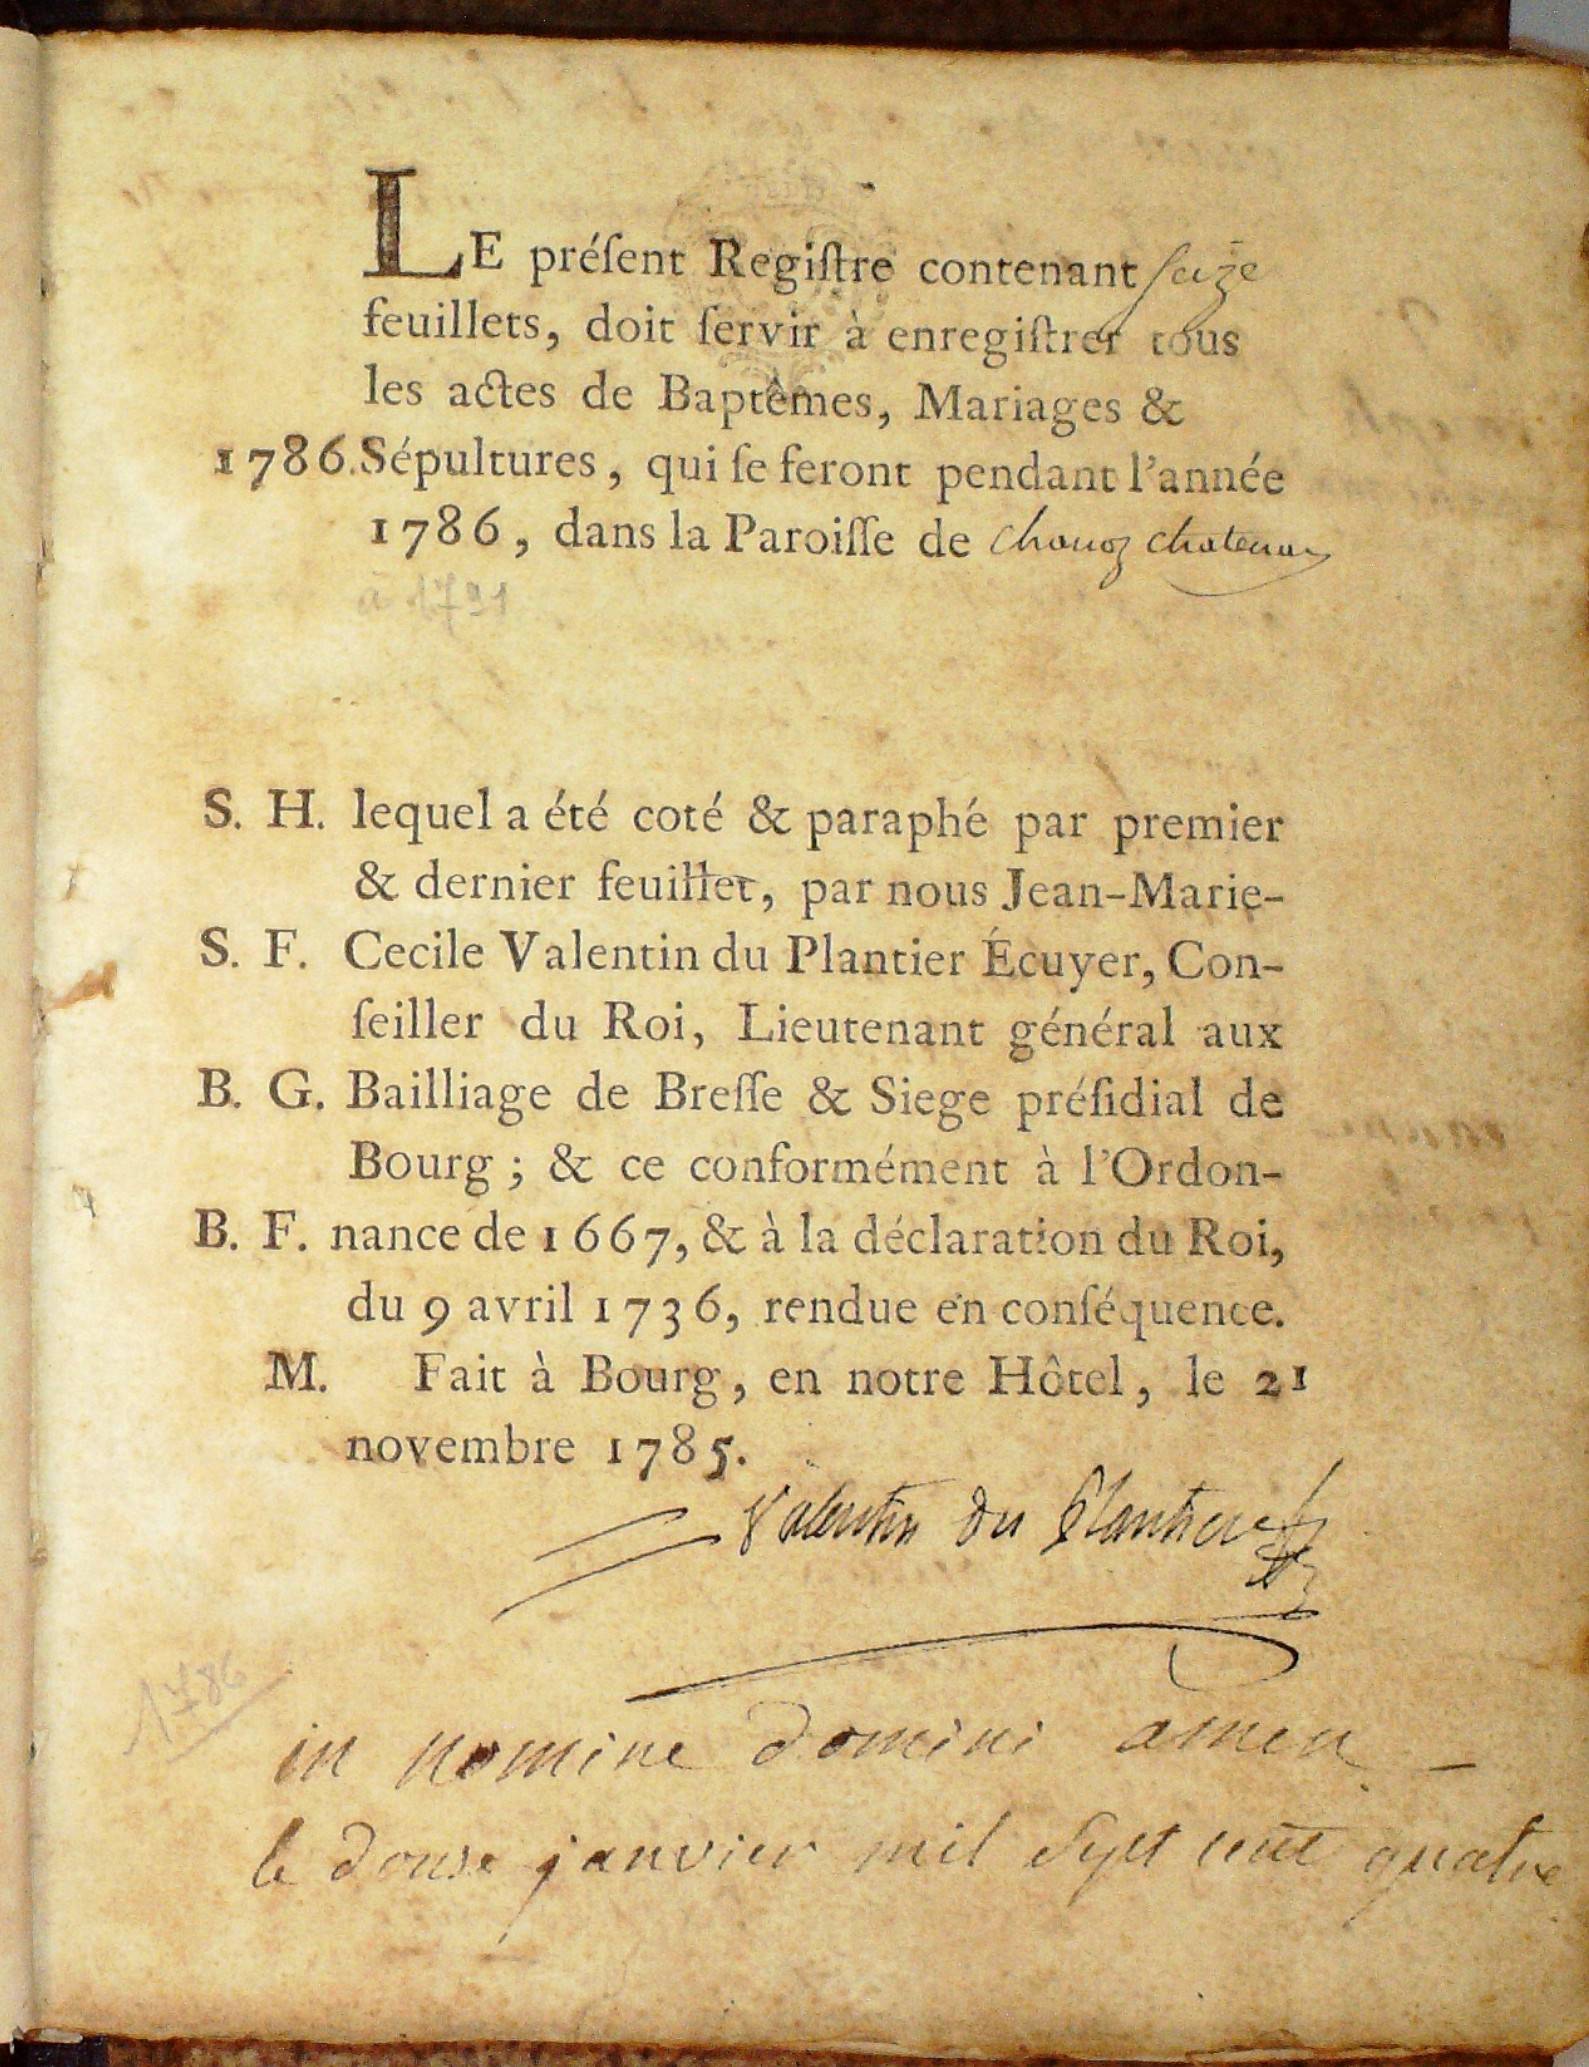 LE préſent Regiſtre contenant seize
feuillets, doit ſervir à enregiſtrer tous
les actes de Baptêmes, Mariages &
1786. Sépultures, qui ſe feront pendant l'année
1786, dans la Paroiſſe de chanoz chatenay
à 1791
S. H. lequel a été coté & paraphé par premier
& dernier feuillet, par nous Jean-Marie-
S. F. Cecile Valentin du Plantier Écuyer, Con-
ſeiller du Roi, Lieutenant général aux
B. G. Bailliage de Breſſe & Siege préſidial de
Bourg ; & ce conformément à l'Ordon-
B. F. nance de 1667, & à la déclaration du Roi,
du 9 avril 1736, rendue en conſéquence.
M. Fait à Bourg, en notre Hôtel, le 21
novembre 1785.
Valentin du Plantier
1786
in nomine domini amen
le douse janvier mil sept cent quatre